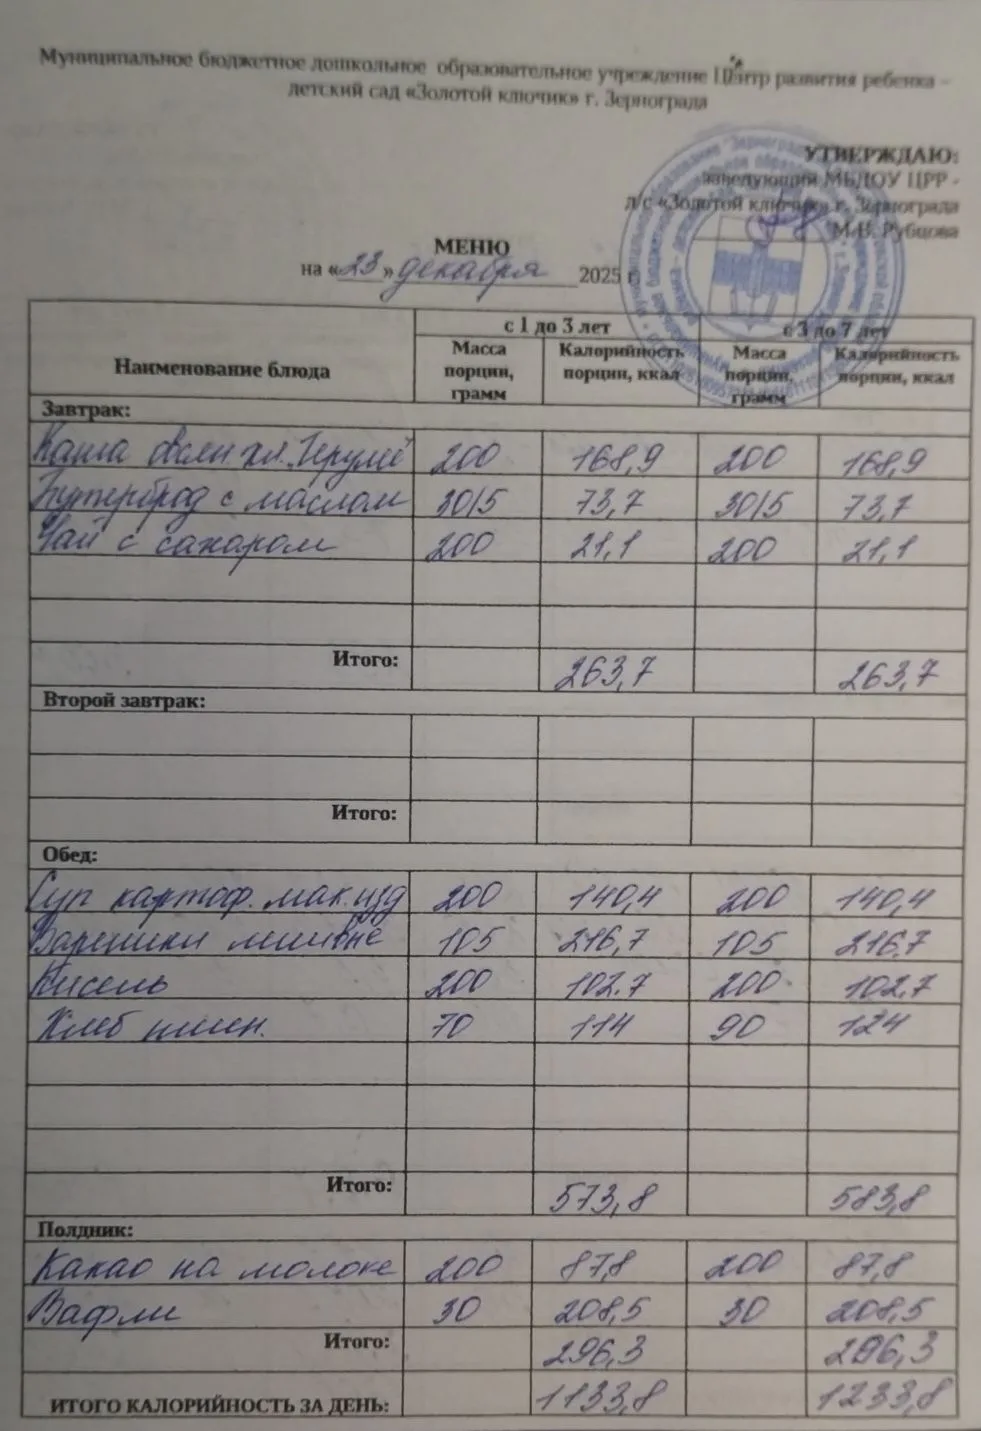 Муниципальное бюджетное дошкольное образовательное учреждение Центр развития ребенка –
детский сад «Золотой ключик» г. Зернограда
УТВЕРЖДАЮ:
заведующий МБДОУ ЦРР -
д/с «Золотой ключик» г. Зернограда
М.В. Рубцова
МЕНЮ
на «23» декабря 2025 г.
Наименование блюда с 1 до 3 лет с 3 до 7 лет
Масса порции, грамм Калорийность порции, ккал Масса порции, грамм Калорийность порции, ккал
Завтрак:
Каша овсян. хл. "Геркулес" 200 168,9 200 168,9
Бутерброд с маслом 30/5 73,7 30/5 73,7
Чай с сахаром 200 21,1 200 21,1
Итого: 263,7 263,7
Второй завтрак:
Итого:
Обед:
Суп картоф. мак. изд 200 140,4 200 140,4
Вареники ленивые 105 216,7 105 216,7
Кисель 200 102.7 200 102,7
Хлеб пшен. 70 114 90 124
Итого: 573,8 583,8
Полдник:
Какао на молоке 200 87,8 200 87,8
Вафли 30 208,5 30 208,5
Итого: 296,3 296,3
ИТОГО КАЛОРИЙНОСТЬ ЗА ДЕНЬ: 1133,8 1233,8